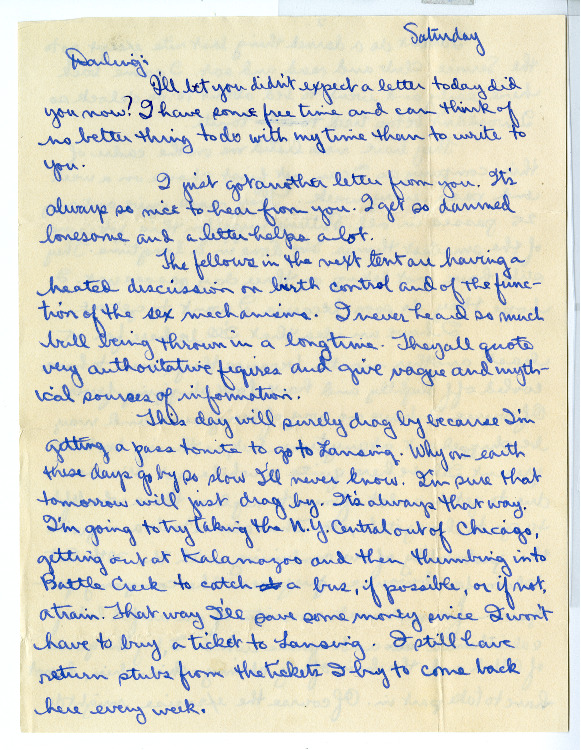 Saturday
Darling:
I'll bet you didn't expect a letter today did
you now? I have some free time and can think of
no better thing to do with my time than to write to
you.
I just got another letter from you. It's
always so nice to hear from you. I get so damned
lonesome and a letter helps a lot.
The fellows in the next tent are having a
heated discussion on birth control and of the func-
tion of the sex mechanisms. I never heard so much
bull being thrown in a long time. They all quote
very authoritative figures and give vague and myth-
ical sources of information.
This day will surely drag by because I'm
getting a pass tonite to go to Lansing. Why on earth
these days go by so slow I'll never know. I'm sure that
tomorrow will just drag by. It's always that way.
I'm going to try taking the N.Y. Central out of Chicago,
getting out at Kalamazoo and then thumbing into
Battle Creek to catch a bus, if possible, or if not,
a train. That way I'll save some money since I won't
have to buy a ticket to Lansing. I still have
return stubs from the tickets I buy to come back
here every week.